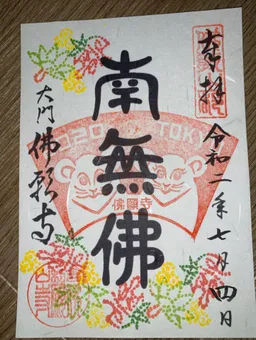 奉拝
令和二年七月四日
南無佛
2020 TOKYO
佛願寺
大門 佛願寺